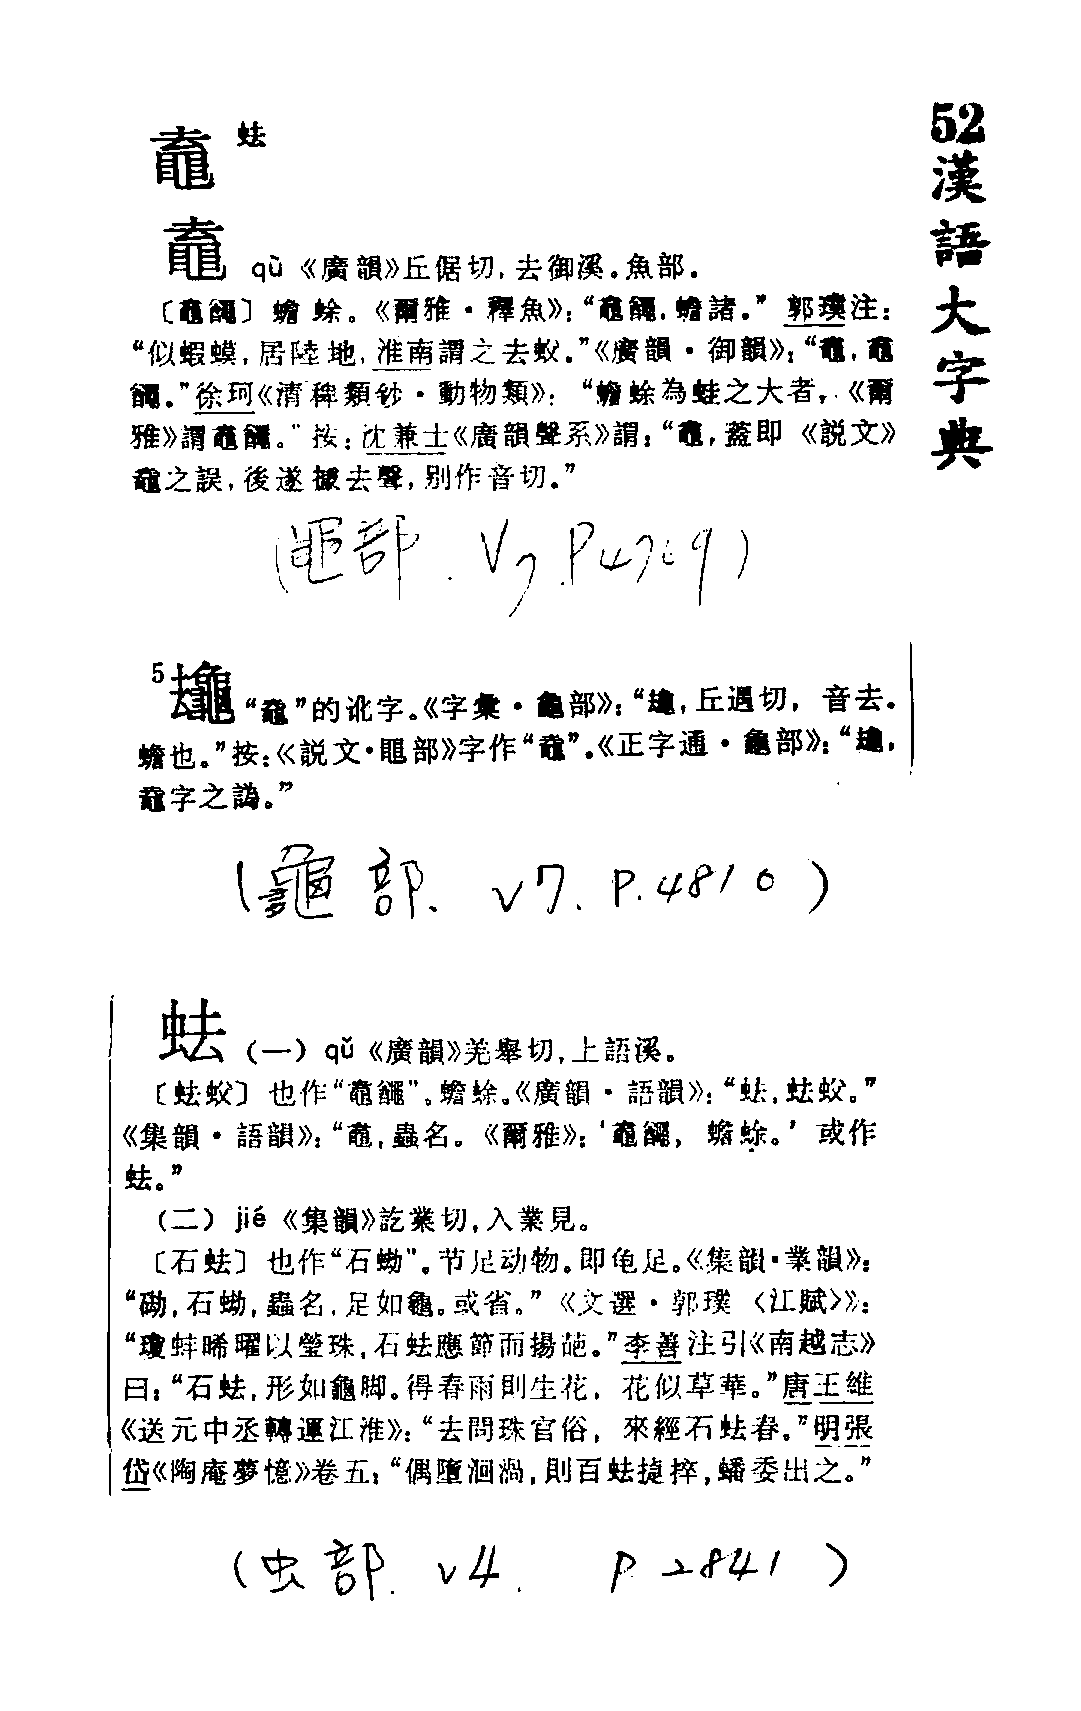 52漢語大字典
𪓰 蚨
𪓰 qù《廣韻》丘倨切,去御溪。魚部。
〔𪓰𪓿〕蟾蜍。《爾雅·釋魚》:“𪓰𪓿,蟾諸。”郭璞注:
“似蝦蟆,居陸地,淮南謂之去蚁。”《廣韻·御韻》:“𪓰,𪓰
𪓿。”徐珂《清稗類鈔·動物類》:“蟾蜍為蛙之大者,《爾
雅》謂𪓰𪓿。”按:沈兼士《廣韻聲系》謂:“𪓰,蓋即《説文》
之誤,後遂據去聲,别作音切。”
(黽部. V7. P4769)
5 “𪓰”的讹字。《字彙·龜部》:“,丘遇切,音去。
蟾也。”按:《説文·黽部》字作“𪓰”。《正字通·龜部》:“,
𪓰字之譌。”
(龜部. v7. P.4810)
(一)qǔ《廣韻》羌舉切,上語溪。
〔蚁〕也作“𪓰𪓿”。蟾蜍。《廣韻·語韻》:“,蚁。”
《集韻·語韻》:“𪓰,蟲名。《爾雅》:‘𪓰𪓿,蟾蜍。’或作
。”
(二)jié《集韻》訖業切,入業見。
〔石〕也作“石蜐”。节足动物。即龟足。《集韻·業韻》:
“,石蜐,蟲名,足如龜。或省。”《文選·郭璞〈江賦〉》:
“瓊蚌晞曜以瑩珠,石應節而揚葩。”李善注引《南越志》
曰:“石,形如龜脚。得春雨則生花,花似草華。”唐王維
《送元中丞轉運江淮》:“去問珠官俗,來經石春。”明張
岱《陶庵夢憶》卷五:“偶墮洄渦,則百捷捽,蟠委出之。”
(虫部. v4. P.2841)